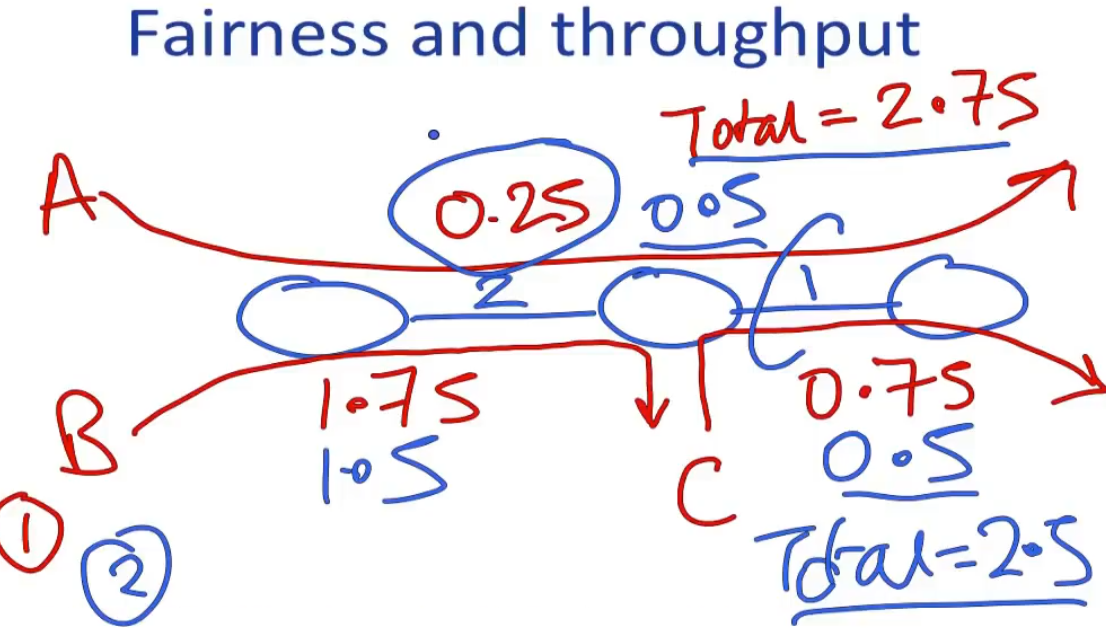 Fairness and throughput
Total = 2.75
A
0.25
0.5
2
1
1.75
0.75
B
1.5
C
0.5
1
2
Total = 2.5